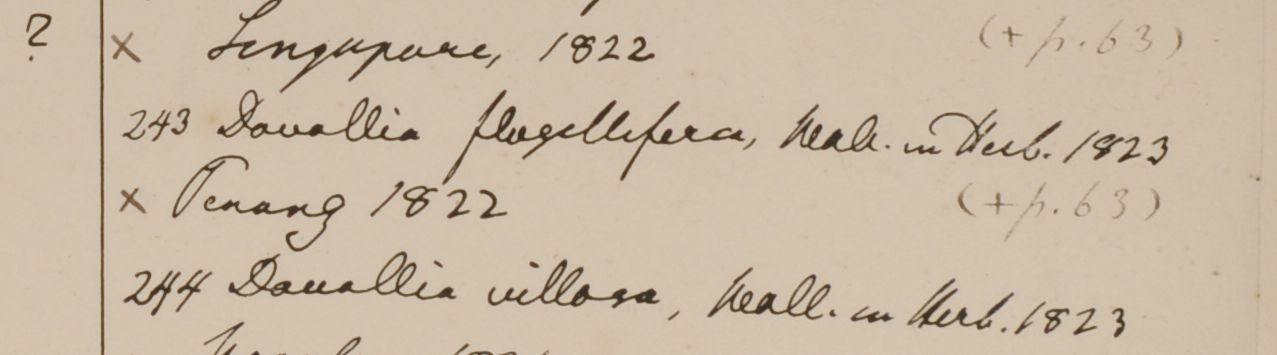 ? × Singapore, 1822 (+ p. 63)
243 Davallia flagellifera, Wall. in Herb. 1823
× Penang 1822 (+ p. 63)
244 Davallia villosa, Wall. in Herb. 1823